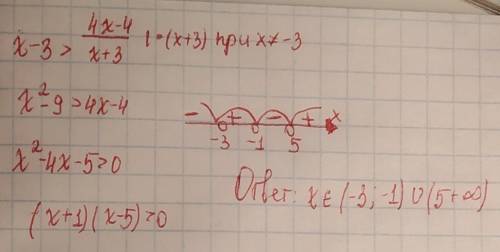 x-3 > \frac{4x-4}{x+3} | • (x+3) при x ≠ -3
x²-9 > 4x-4
x²-4x-5>0
(x+1)(x-5)>0
- + - + x
-3 -1 5
Ответ: x ∈ (-3; -1) ∪ (5+∞)